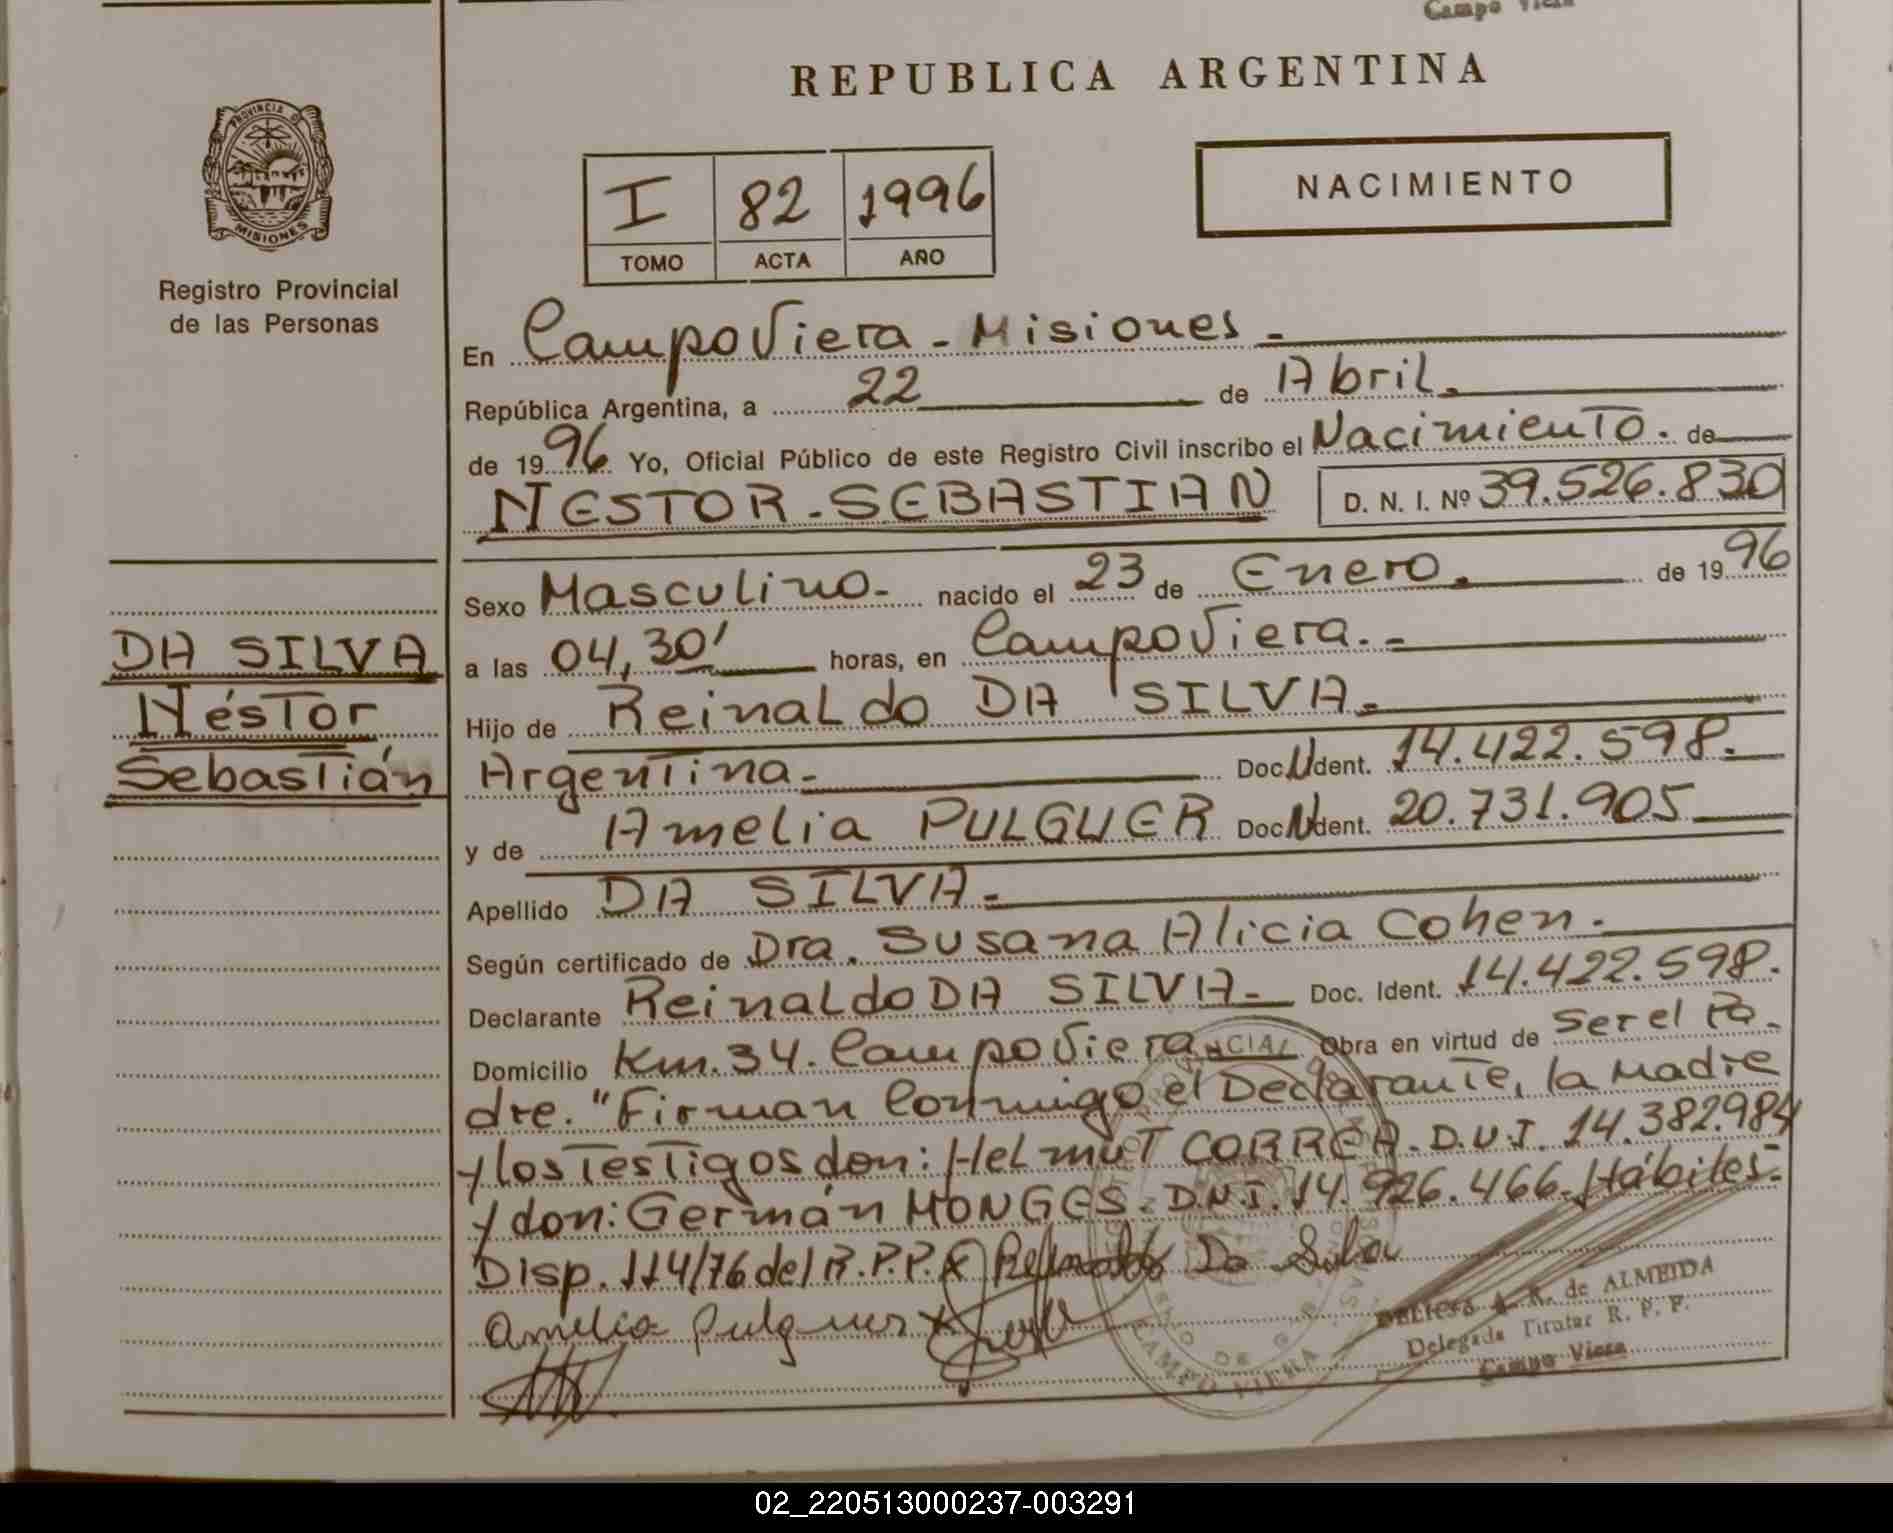 Campo Viera
REPUBLICA ARGENTINA
PROVINCIA DE
MISIONES
Registro Provincial
de las Personas
I 82 1996
TOMO ACTA AÑO
NACIMIENTO
En Campo Viera - Misiones -
República Argentina, a 22 de Abril.
de 1996 Yo, Oficial Público de este Registro Civil inscribo el Nacimiento. de
NESTOR - SEBASTIAN D. N. I. Nº 39.526.830
Sexo Masculino- nacido el 23 de Enero. de 1996
DA SILVA
Néstor
Sebastián
a las 04,30' horas, en Campo Viera. -
Hijo de Reinaldo DA SILVA. -
Argentina - Doc. N Ident. 14.422.598. -
y de Amelia PULGUER Doc. N Ident. 20.731.905
Apellido DA SILVA. -
Según certificado de Dra. Susana Alicia Cohen. -
Declarante Reinaldo DA SILVA - Doc. Ident. 14.422.598.
Domicilio Km. 34. Campo Viera - Obra en virtud de ser el Pa-
dre. "Firman Conmigo el Declarante, la Madre
y los Testigos don: Helmut CORREA. D.N.I. 14.382.984
y don: Germán MONGES. D.N.I. 14.926.466. Hábiles -
Disp. 114/76 del R.P.P. Reinaldo Da Silva
Amelia Pulguer
A. R. de ALMEIDA
Delegada Titular R. P. P.
Campo Viera
CAMPO VIERA
02_220513000237-003291